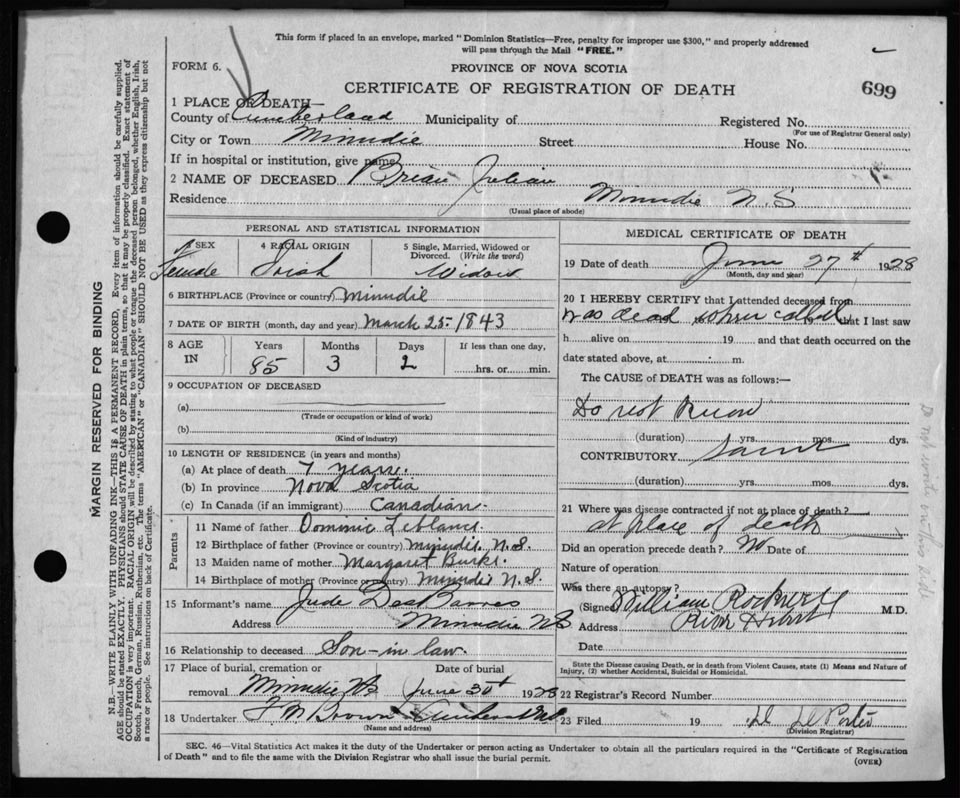 This form if placed in an envelope, marked "Dominion Statistics—Free, penalty for improper use $300," and properly addressed
will pass through the Mail "FREE."
FORM 6.
PROVINCE OF NOVA SCOTIA
CERTIFICATE OF REGISTRATION OF DEATH
699
1 PLACE OF DEATH—
County of Cumberland Municipality of Registered No.
(For use of Registrar General only)
City or Town Minudie Street House No.
If in hospital or institution, give name
2 NAME OF DECEASED Brian Julian
Residence Minudie N.S
(Usual place of abode)
PERSONAL AND STATISTICAL INFORMATION
3 SEX 4 RACIAL ORIGIN 5 Single, Married, Widowed or
Divorced. (Write the word)
Female Irish Widow
6 BIRTHPLACE (Province or country) Minudie
7 DATE OF BIRTH (month, day and year) March 25. 1843
8 AGE IN Years Months Days If less than one day,
85 3 2 hrs. or min.
9 OCCUPATION OF DECEASED
(a)
(Trade or occupation or kind of work)
(b)
(Kind of industry)
10 LENGTH OF RESIDENCE (in years and months)
(a) At place of death 7 years.
(b) In province Nova Scotia
(c) In Canada (if an immigrant) Canadian.
Parents
11 Name of father Dominic Leblanc.
12 Birthplace of father (Province or country) Minudie N.S.
13 Maiden name of mother Margaret Burke.
14 Birthplace of mother (Province or country) Minudie N.S.
15 Informant's name Jude DesBarres
Address Minudie NS
16 Relationship to deceased Son-in law.
17 Place of burial, cremation or Date of burial
removal Minudie NS June 30t 1928
18 Undertaker F N Brown Amherst NS
(Name and address)
MEDICAL CERTIFICATE OF DEATH
19 Date of death June 27th 1928
(Month, day and year)
20 I HEREBY CERTIFY that I attended deceased from
was dead when called 19 that I last saw
h alive on 19 and that death occurred on the
date stated above, at : m.
The CAUSE of DEATH was as follows:—
Do not Know
(duration) yrs. mos. dys.
CONTRIBUTORY Same
(duration) yrs. mos. dys.
21 Where was disease contracted if not at place of death?
at place of death
Did an operation precede death? No Date of
Nature of operation
Was there an autopsy?
(Signed) William Rockwell M.D.
Address River Hebert
Date
State the Disease causing Death, or in death from Violent Causes, state (1) Means and Nature of
Injury, (2) whether Accidental, Suicidal or Homicidal.
22 Registrar's Record Number
23 Filed 19
(Division Registrar)
SEC. 46—Vital Statistics Act makes it the duty of the Undertaker or person acting as Undertaker to obtain all the particulars required in the "Certificate of Registration
of Death" and to file the same with the Division Registrar who shall issue the burial permit.
(OVER)
MARGIN RESERVED FOR BINDING
N.B.—WRITE PLAINLY WITH UNFADING INK—THIS IS A PERMANENT RECORD. Every item of information should be carefully supplied.
AGE should be stated EXACTLY. PHYSICIANS should STATE CAUSE OF DEATH in plain terms, so that it may be properly classified. Exact statement of
OCCUPATION is very important. RACIAL ORIGIN will be described by stating to what people or tongue the deceased person belonged, whether English, Irish,
Scotch, French, German, Russian, Ruthenian, etc. The terms "AMERICAN" or "CANADIAN" SHOULD NOT BE USED as they express citizenship but not
a race or people. See instructions on back of Certificate.
Do not write on this